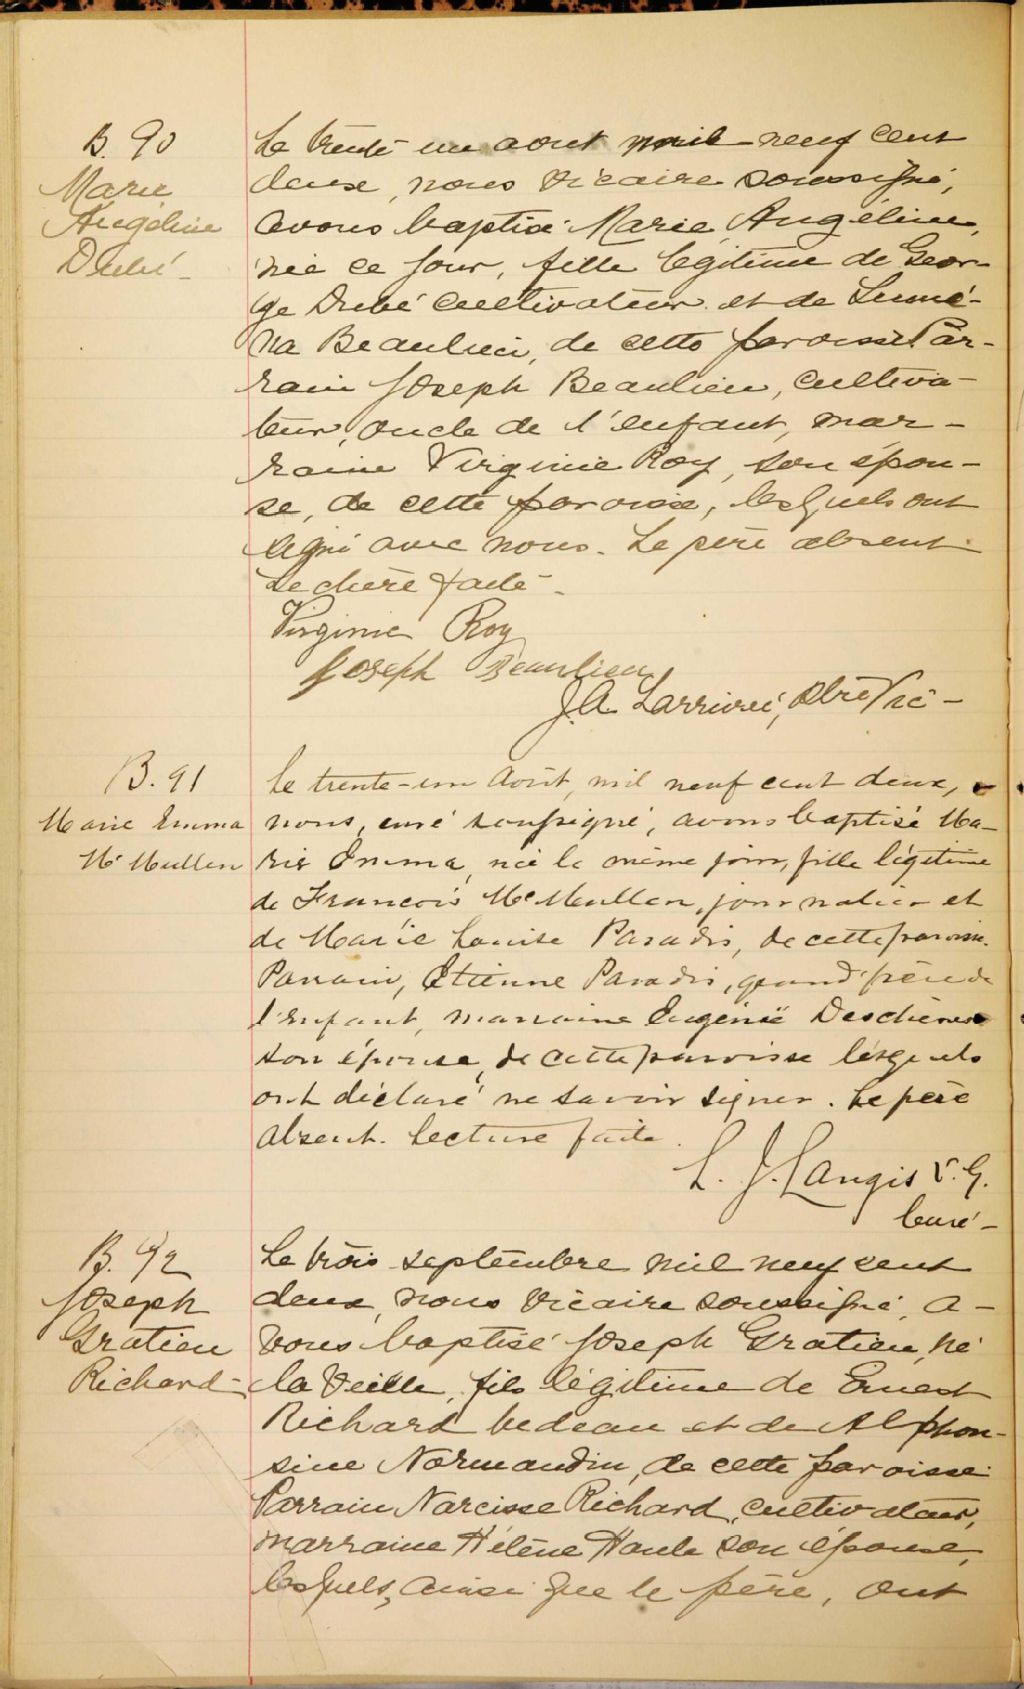 B. 90
Marie
Angéline
Dubé
Le trente un aout mil neuf cent
deux, nous vicaire soussigné,
avons baptisé Marie Angéline,
née ce jour, fille légitime de Geor-
ge Dubé cultivateur et de Lumé-
na Beaulieu, de cette paroisse Par-
rain Joseph Beaulieu, cultiva-
teur, oncle de l'enfant, mar-
raine Virginie Roy, son épou-
se, de cette paroisse, lesquels ont
signé avec nous. Le père absent
Lecture faite
Virginie Roy
Joseph Beaulieu
J.A. Larrivée, Ptre Vic-
B. 91
Marie Emma
Mc Mullen
Le trente-un Août, mil neuf cent deux,
nous, curé soussigné, avons baptisé Ma-
rie Emma, née le même jour, fille légitime
de François Mc Mullen, journalier et
de Marie Louise Paradis, de cette paroisse.
Parrain, Etienne Paradis, grand'père de
l'enfant, marraine Eugénie Deschènes
son épouse, de cette paroisse lesquels
ont déclaré ne savoir signer. Le père
absent. Lecture faite.
L. J. Langis V. G.
Curé-
B. 92
Joseph
Gratien
Richard
Le trois septembre mil neuf cent
deux, nous vicaire soussigné, a-
vons baptisé Joseph Gratien, né
la veille, fils légitime de Ernest
Richard bedeau et de Alphon-
sine Normandin, de cette paroisse
Parrain Narcisse Richard, cultivateur,
marraine Hélène Houle son épouse,
lesquels, ainsi que le père, ont